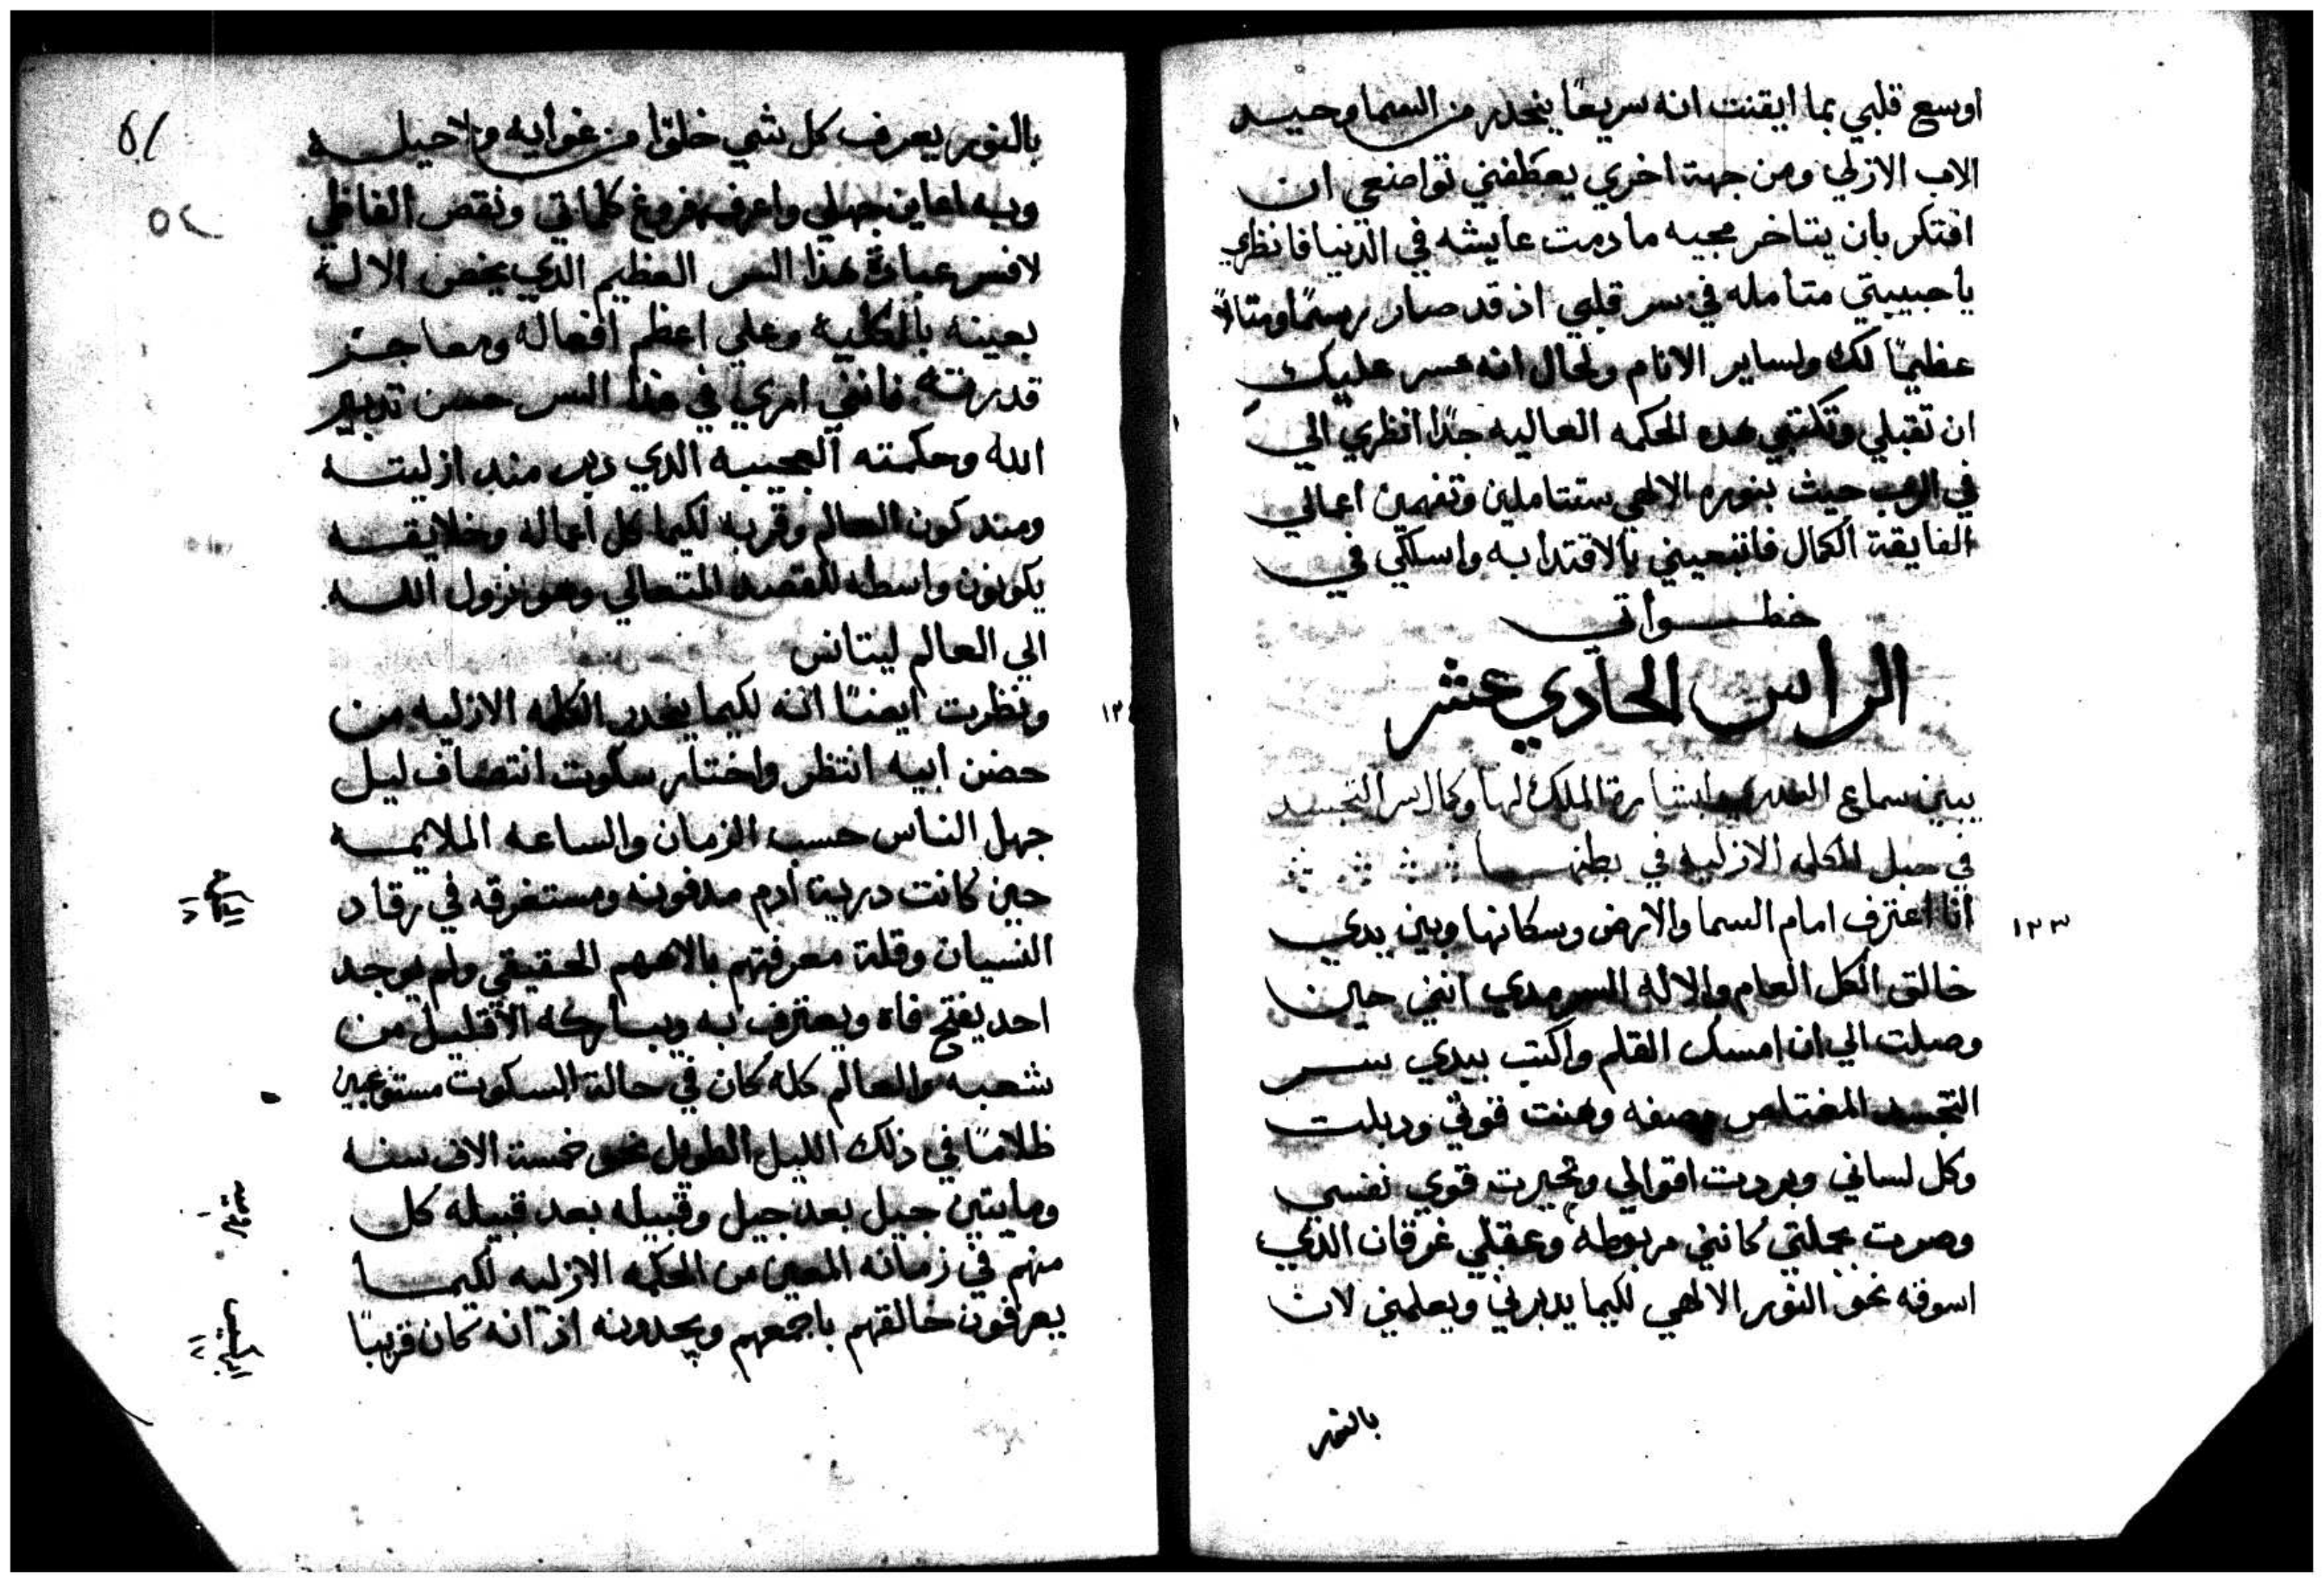 اوسع قلبي بما ايقنت انه سريعًا ينحدر من السما وحيد
الاب الازلي ومن جهة اخري يعطفني تواضعي ان
افتكر بان يتاخر مجيه ما دمت عايشه في الدنيا فانظري
يا حبيبتي متامله في سر قلبي اذ قد صار رسمًا ومثالاً
عظيمًا لك ولساير الانام ولحال انه عسر عليك
ان تقبلي وتكتبي هده الحكمه العاليه جدًا انظري الي
في الرب حيث بنوره الالهي ستتاملين وتفهمين اعمالي
الفايقة الكمال فاتبعيني بالاقتدا به واسلكي في
خطواتي
الراس الحادي عشر
يبين سماع العدري بشارة الملاك لها وكمال سر التجسد
في حبل الكلمه الازليه في بطنها
انا اعترف امام السما والارض وسكانها وبين يدي
خالق الكل العام والاله السرمدي انني حين
وصلت الي ان امسك القلم واكتب بيدي سر
التجسد المغتاص وصفه وهنت قوتي ودبلت
وكل لساني وبردت اقوالي وتحيرت قوي نفسي
وصرت بجملتي كانني مربوطه وعقلي غرقان الذي
اسوقه نحو النور الالهي لكيما يدبرني ويعلمني لان
١٣٣
بالنور
بالنور يعرف كل شي خلوًا من غوايه ولا حيله
وبه اعاين جهلي واعرف فروغ كلماتي ونقص الفاظي
لافسر عبارة هذا السر العظيم الدي يخص الاله
بعينه بالكليه وعلي اعظم افعاله ومعاجز
قدرته فانني اري في هذا السر حسن تدبير
الله وحكمته العجيبه الدي دبر مند ازليته
ومند كون العالم وقربه لكيما كل اعماله وخلايقه
يكونون واسطه للقصد المتعالي وهو نزول الله
الي العالم ليتانس
ونظرت ايضًا انه لكيما ينحدر الكلمه الازليه من
حضن ابيه انتظر واختار سكوت انتصاف ليل
جهل الناس حسب الزمان والساعه الملايمه
حين كانت درية ادم مدفونه ومستغرقه في رقاد
النسيان وقلة معرفتهم بالاههم الحقيقي ولم يوجد
احد يفتح فاه ويعترف به ويباركه الا قليل من
شعبه والعالم كله كان في حالة السكوت مستوعبين
ظلامًا في ذلك الليل الطويل نحو خمسة الاف سنه
ومايتين جيل بعد جيل وقبيله بعد قبيله كل
منهم في زمانه المعين من الحكمه الازليه لكيما
يعرفون خالقهم باجمعهم ويجدونه اذ انه كان قريبًا
٥٢